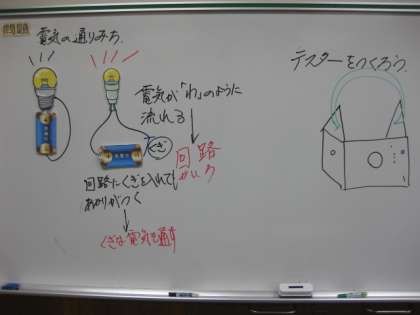 電気の通りみち
電気が「わ」のように
流れる
回路
かいろ
くぎ
回路にくぎを入れても
あかりがつく
くぎは電気を通す
テスターをつくろう